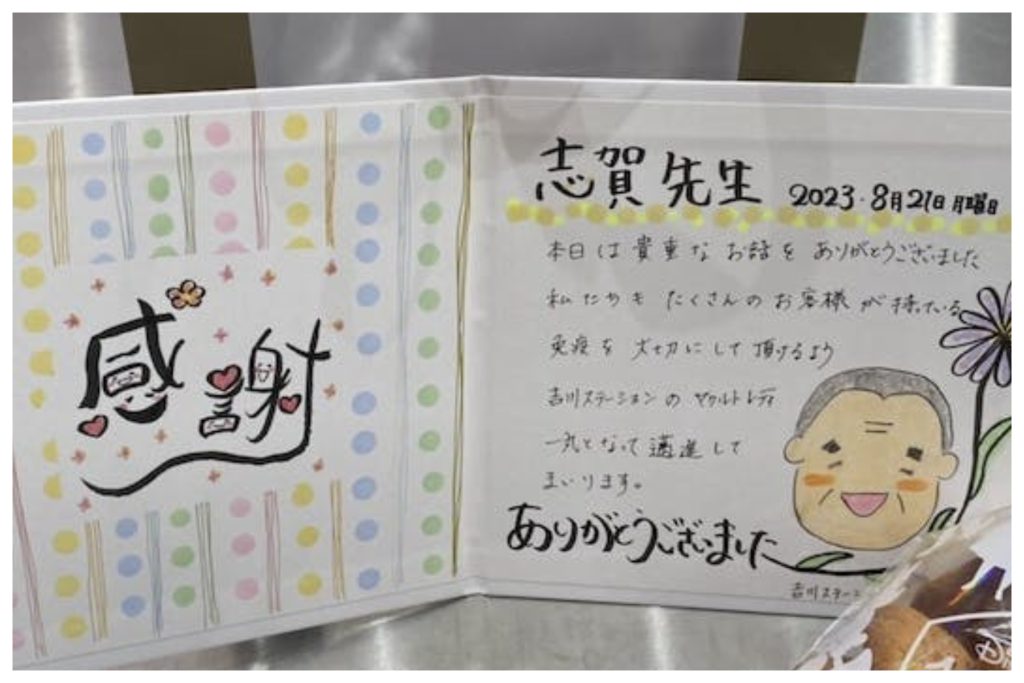 感謝
志賀先生 2023.8月21日月曜日
本日は貴重なお話をありがとうございました
私たちもたくさんのお客様が持っている
免疫を大切にして頂けるよう
吉川ステーションのヤクルトレディ
一丸となって邁進して
まいります。
ありがとうございました
吉川ステーシ